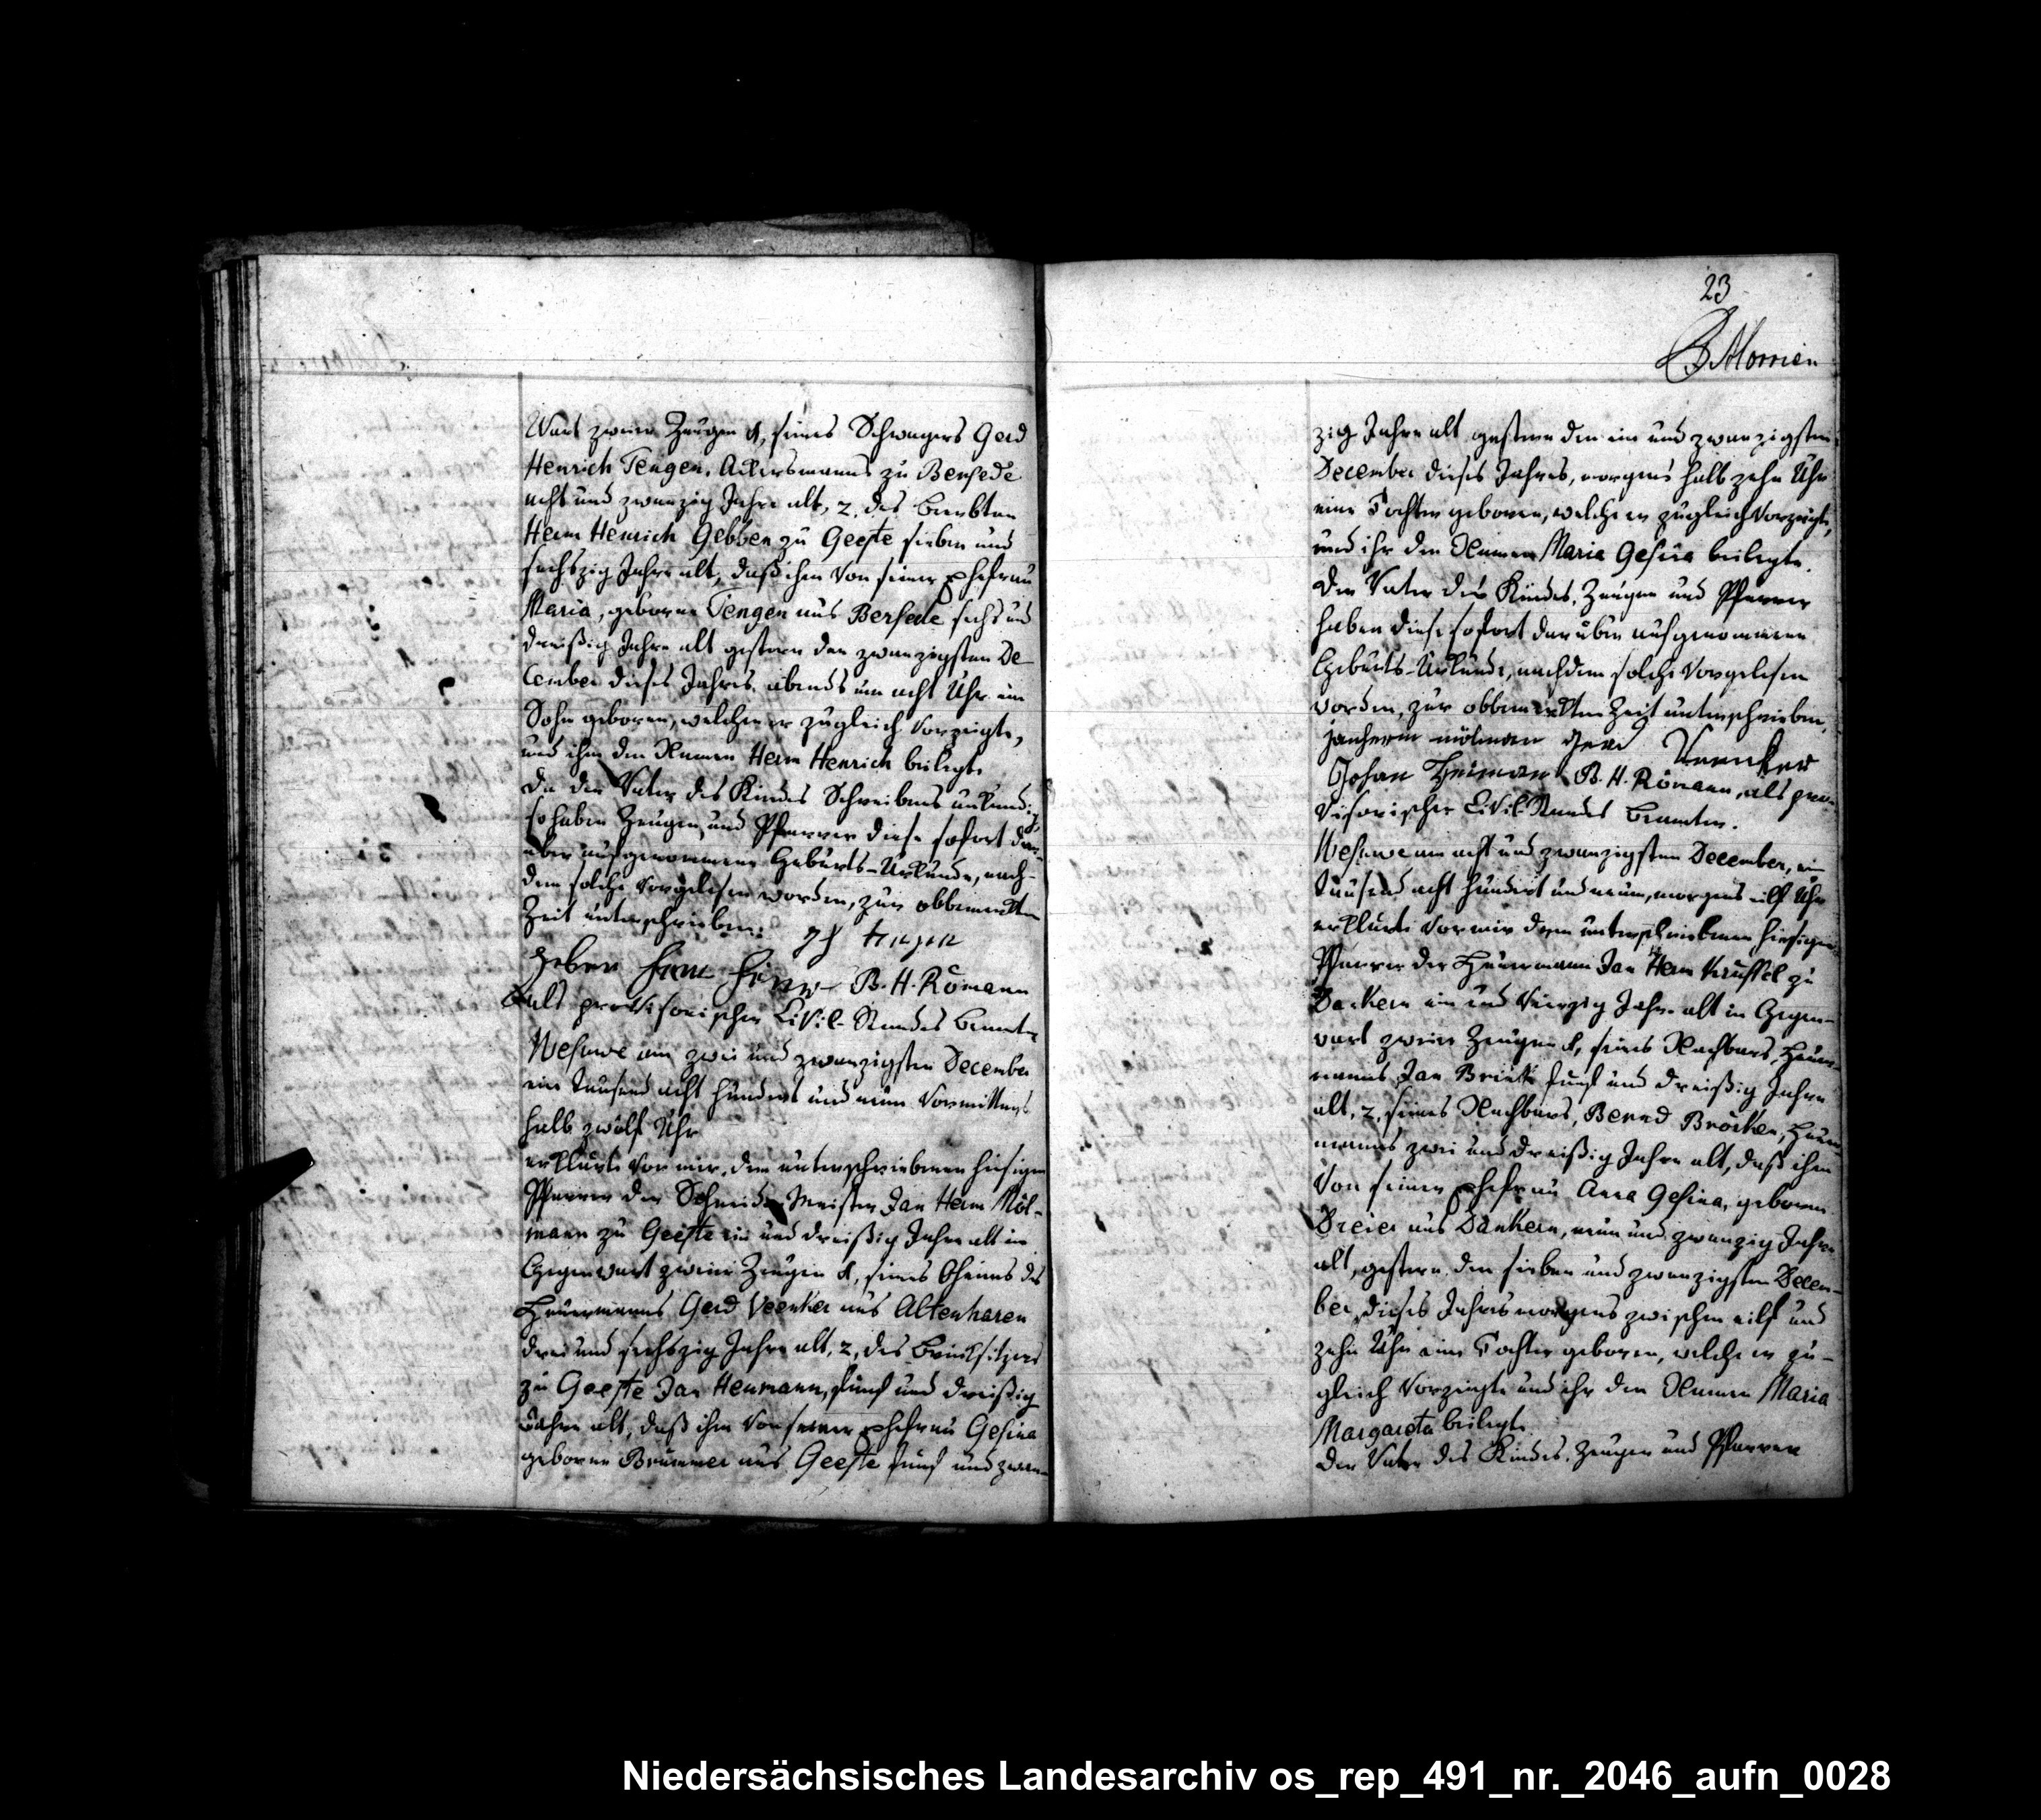 23
B Morrien
Wart zweier Zeugen 1, seines Schwagers Gerd
Henrich Tengen, Ackersmanns zu Bersede
acht und zwanzig Jahre alt, 2. des Beerbten
Herm Henrich Gebben zu Geeste sieben und
sechszig Jahre alt, daß ihm von seiner Ehefrau
Maria, geborne Tengen aus Bersede sechs und
dreißig Jahre alt gestern den zwanzigsten De
cember dieses Jahres abends um acht Uhr ein
Sohn geboren, welchen er zugleich vorzeigte,
und ihm den Namen Herm Henrich beilegte
Da der Vater des Kindes Schreibens unkundig,
so haben Zeugen und Pfarrer diese sofort dar-
über aufgenommene Geburts-Urkunde, nach-
dem solche vorgelesen worden, zur obbemerkten
Zeit unterschrieben:
gh tengen
geben herm B. H. Römann
als provisorischer Civil-Standes Beamter
Wesuwe am zwei und zwanzigsten December
ein tausend acht hundert und neun Vormittags
halb zwölf Uhr
erklärte vor mir, dem unterschriebenen hiesigen
Pfarrer der Schneider Meister Jan Herm Möl-
mann zu Geeste ein und dreißig Jahre alt in
Gegenwart zweier Zeugen 1, seines Oheims des
Heuermanns Gerd Veenker aus Altenharen
drei und sechszig Jahre alt, 2, des Brinksitzers
zu Geeste Jan Heumann, fünf und dreißig
Jahre alt, daß ihm von seiner Ehefrau Gesina
geborne Brümmer aus Geeste fünf und zwan-
zig Jahre alt gestern den ein und zwanzigsten
December dieses Jahres, morgens halb zehn Uhr
eine Tochter geboren, welche er zugleich vorzeigte,
und ihr den Namen Maria Gesina beilegte.
Der Vater des Kindes, Zeugen und Pfarrer
haben diese sofort darüber aufgenommene
Geburts-Urkunde, nachdem solche vorgelesen
worden, zur obbemerkten Zeit unterschrieben,
janherm mölman gerd Veenker
Johan Heiman B. H. Römann, als pro-
visorischer Civil-Standes Beamter.
Wesuwe am acht und zwanzigsten December, ein
tausend acht hundert und neun, morgens eilf Uhr
erklärte vor mir dem unterschriebenen hiesigen
Pfarrer der Heuermann Jan Herm Krüssel zu
Dankern ein und vierzig Jahre alt in Gegen-
wart zweier Zeugen 1, seines Nachbars, Heuer-
manns Jan Brink fünf und dreißig Jahre
alt, 2, seines Nachbars, Bernd Bröcker, Heuer-
manns zwei und dreißig Jahre alt, daß ihm
von seiner Ehefrau Anna Gesina, geborne
Dreier aus Dankern, neun und zwanzig Jahre
alt, gestern den sieben und zwanzigsten Decem-
ber dieses Jahrs morgens zwischen eilf und
zehn Uhr eine Tochter geboren, welche er zu-
gleich vorzeigte und ihr den Namen Maria
Margareta beilegte
Der Vater des Kindes, Zeugen und Pfarrer
Niedersächsisches Landesarchiv os_rep_491_nr._2046_aufn_0028